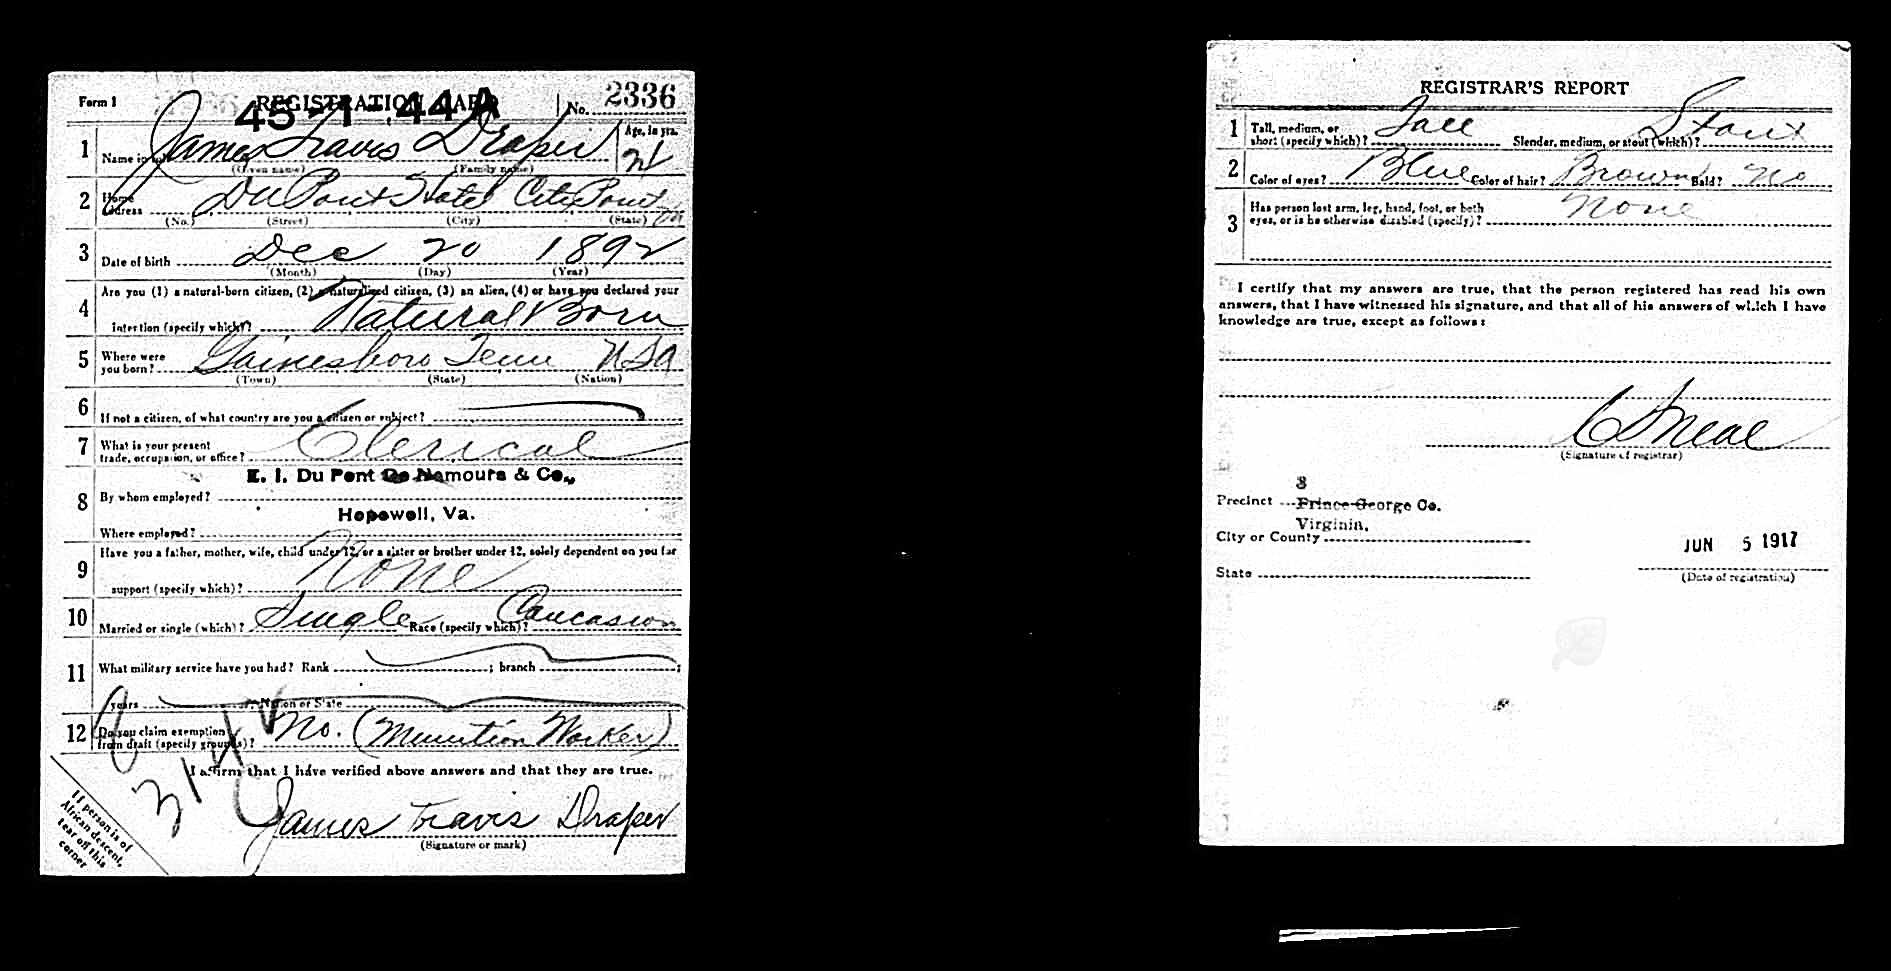 Form 1 REGISTRATION CARD No. 2336
45-1-44 A
1 Name in full James Travis Draper Age, in yrs. 24
(Given name) (Family name)
2 Home address Du Pont Hotel City Point Va
(No.) (Street) (City) (State)
3 Date of birth Dec 20 1892
(Month) (Day) (Year)
4 Are you (1) a natural-born citizen, (2) a naturalized citizen, (3) an alien, (4) or have you declared your
intention (specify which)? Natural Born
5 Where were you born? Gainesboro Tenn USA
(Town) (State) (Nation)
6 If not a citizen, of what country are you a citizen or subject?
7 What is your present trade, occupation, or office? Clerical
E. I. Du Pont De Nemours & Co.,
8 By whom employed?
Hopewell, Va.
Where employed?
9 Have you a father, mother, wife, child under 12, or a sister or brother under 12, solely dependent on you for
support (specify which)? None
10 Married or single (which)? Single Race (specify which)? Caucasian
11 What military service have you had? Rank ; branch ;
years ; Nation or State
12 Do you claim exemption from draft (specify grounds)? No. (Munition Worker)
I affirm that I have verified above answers and that they are true.
James Travis Draper
(Signature or mark)
If person is of
African descent,
tear off this
corner
REGISTRAR'S REPORT
1 Tall, medium, or short (specify which)? Tall Slender, medium, or stout (which)? Stout
2 Color of eyes? Blue Color of hair? Brown Bald? No
3 Has person lost arm, leg, hand, foot, or both
eyes, or is he otherwise disabled (specify)? None
I certify that my answers are true, that the person registered has read his own
answers, that I have witnessed his signature, and that all of his answers of which I have
knowledge are true, except as follows:
(Signature of registrar)
3
Precinct Prince George Co.
Virginia.
City or County
JUN 5 1917
State
(Date of registration)